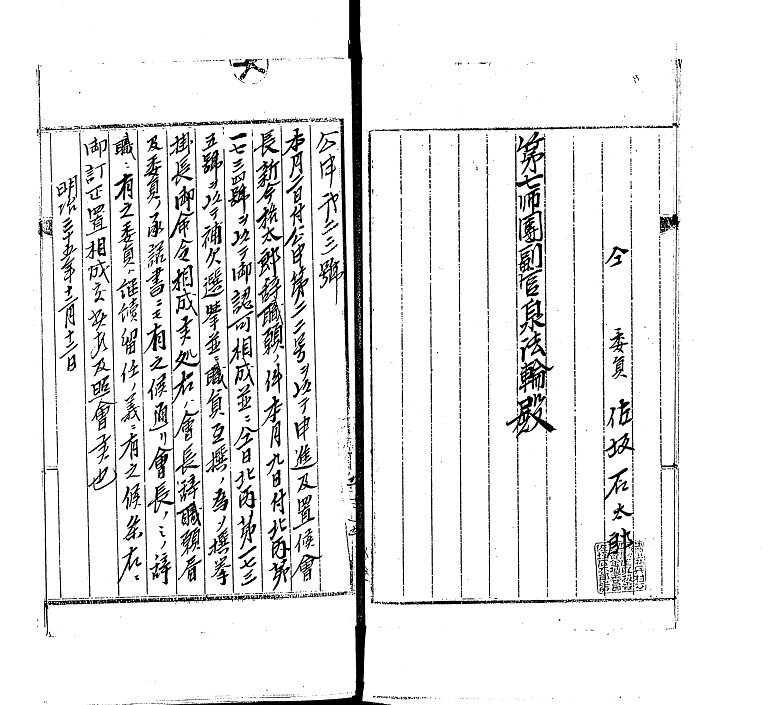 仝　委員　佐坂石太郎
第七師團副官泉法輪殿
公甲第二三號
本月二日付公甲第二二号ヲ以テ申進及置候會
長新今橋太郎辞職願ノ件本月九日付北丙第
一七三四號ヲ以テ御認可相成並ニ仝日北丙第一七三
五號ヲ以テ補欠選挙並ニ職員互撰ノ為メ撰挙
掛長御命令相成候処右ハ會長辞職願書
及委員ノ承諾書ニモ有之候通リ會長ノミノ辞
職ニ有之委員ハ継續留任ノ義ニ有之候条右ニ
御訂正置相成度此段及照會候也
明治三十五年十二月十二日